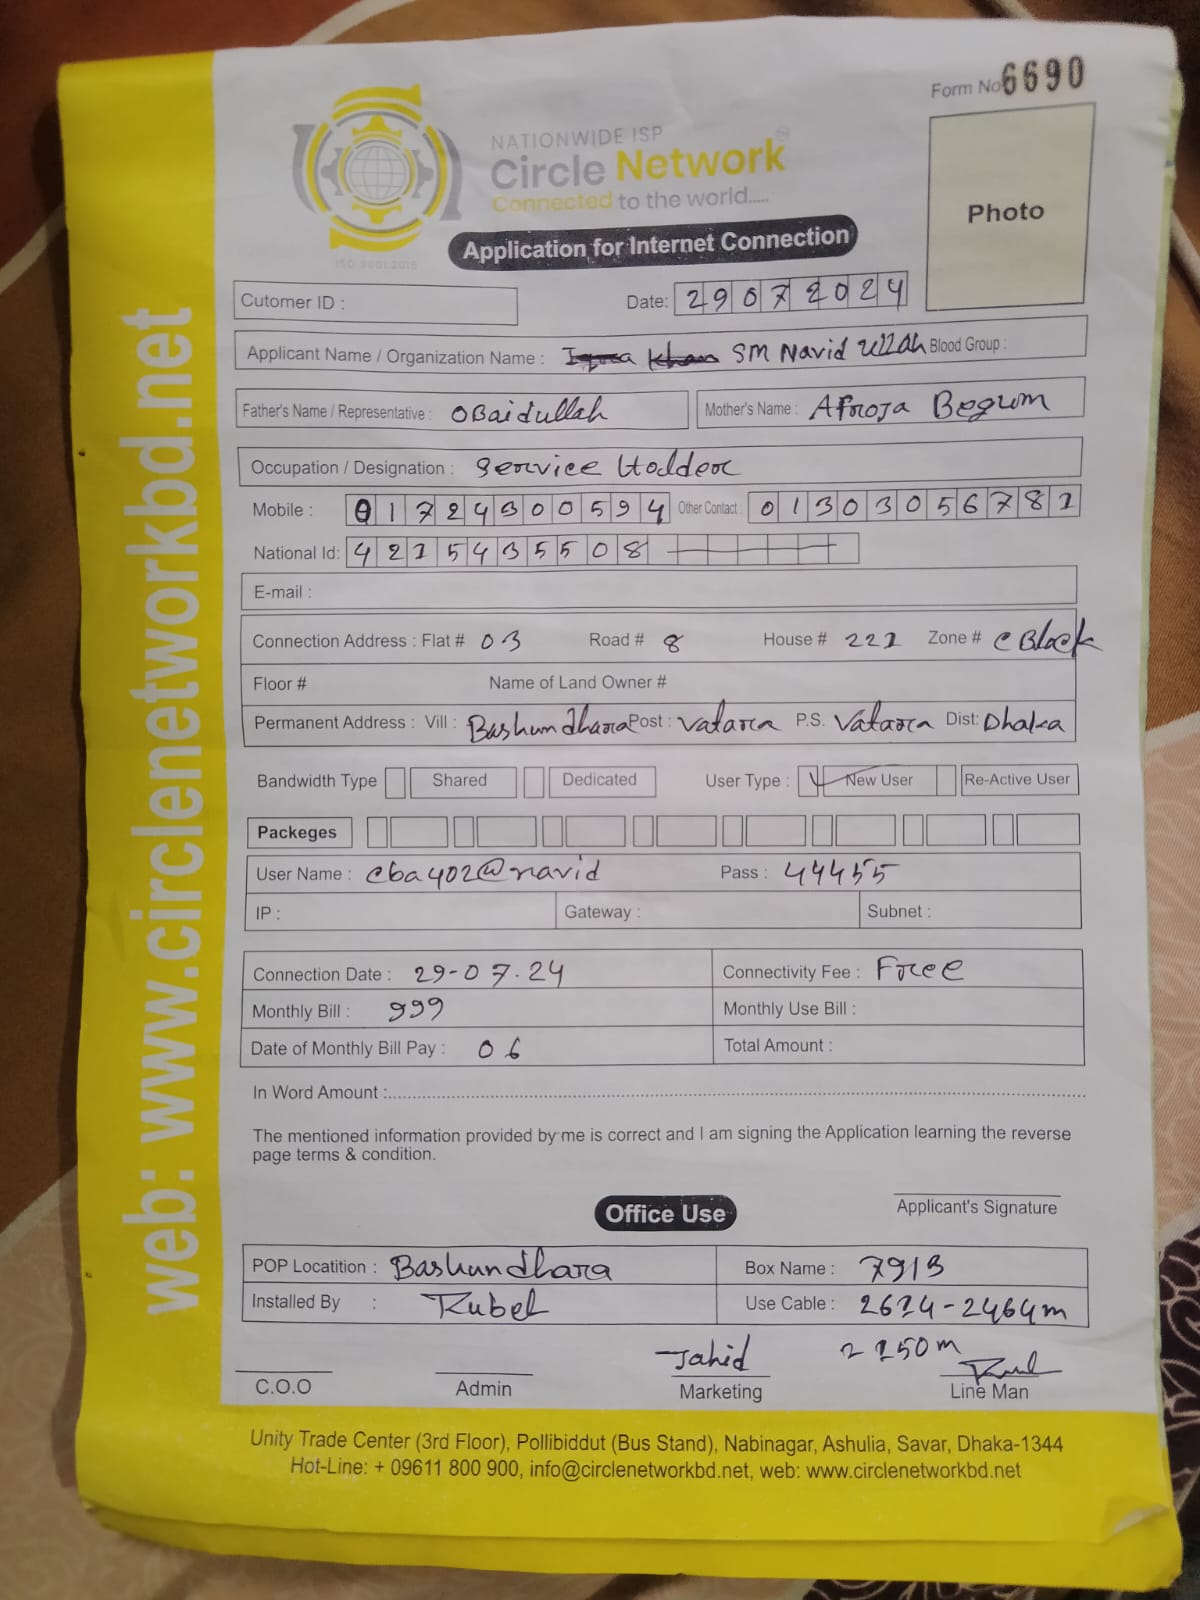 Form No 6690
NATIONWIDE ISP
Circle Network
Connected to the world.....
ISO 9001:2015
Photo
Application for Internet Connection
Cutomer ID :
Date: 29072024
Applicant Name / Organization Name : Iqra Khan SM Navid Ullah Blood Group :
Father's Name / Representative : OBaidullah Mother's Name : Afroja Begum
Occupation / Designation : Service Holder
Mobile : 01724300594 Other Contact : 01303056781
National Id: 4215435508
E-mail :
Connection Address : Flat # 03 Road # 8 House # 221 Zone # C Block
Floor # Name of Land Owner #
Permanent Address : Vill : Bashundhara Post : Vatara P.S. Vatara Dist: Dhaka
Bandwidth Type Shared Dedicated User Type : New User Re-Active User
Packeges
User Name : cba402@navid Pass : 44455
IP : Gateway : Subnet :
Connection Date : 29-07.24 Connectivity Fee : Free
Monthly Bill : 999 Monthly Use Bill :
Date of Monthly Bill Pay : 06 Total Amount :
In Word Amount :
The mentioned information provided by me is correct and I am signing the Application learning the reverse
page terms & condition.
Applicant's Signature
Office Use
POP Locatition : Bashundhara Box Name : 791B
Installed By : Rubel Use Cable : 2614-2464m
Jahid 2 150m
C.O.O Admin Marketing Line Man
Unity Trade Center (3rd Floor), Pollibiddut (Bus Stand), Nabinagar, Ashulia, Savar, Dhaka-1344
Hot-Line: + 09611 800 900, info@circlenetworkbd.net, web: www.circlenetworkbd.net
web: www.circlenetworkbd.net